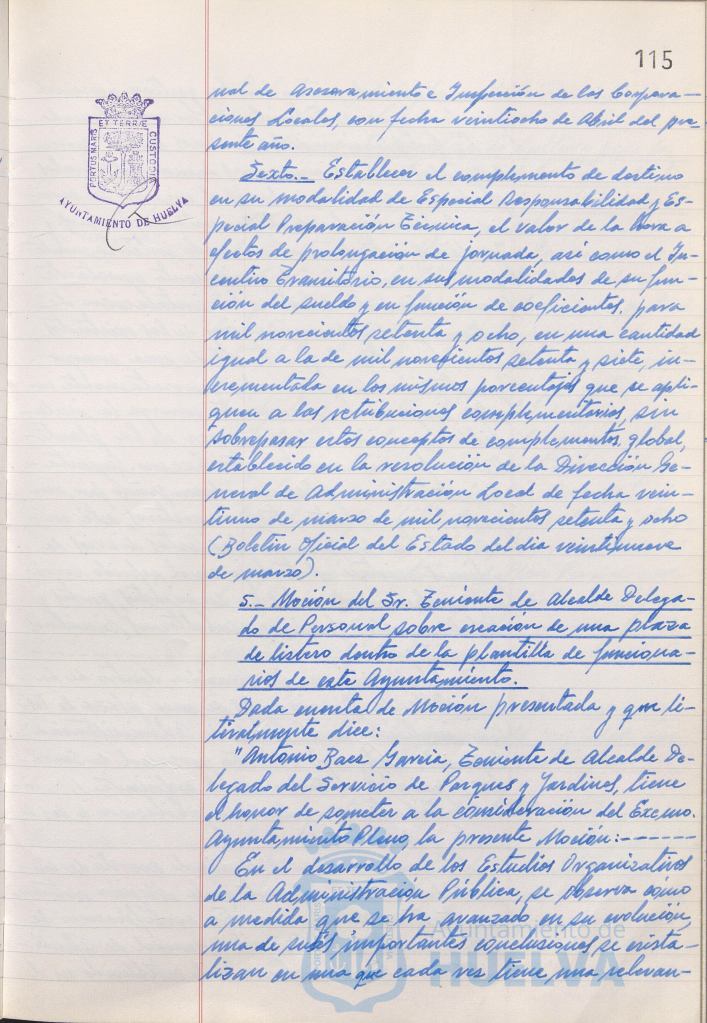 115
PORTUS MARIS ET TERRÆ CUSTODIA
AYUNTAMIENTO DE HUELVA
nal de Asesoramiento e Inspección de las Corpora-
ciones Locales, con fecha veintiocho de Abril del pre-
sente año.
Sexto.- Establecer el complemento de destino
en su modalidad de Especial Responsabilidad y Es-
pecial Preparación Técnica, el valor de la hora a
efectos de prolongación de jornada, así como el In-
centivo Transitorio, en sus modalidades de su fun-
ción del sueldo y en función de coeficientes, para
mil novecientos setenta y ocho, en una cantidad
igual a la de mil novecientos setenta y siete, in-
crementada en los mismos porcentajes que se apli-
quen a las retribuciones complementarias, sin
sobrepasar estos conceptos de complementos, global,
establecido en la resolución de la Dirección Ge-
neral de Administración Local de fecha vein-
tiuno de marzo de mil novecientos setenta y ocho
(Boletín Oficial del Estado del día veintinueve
de marzo).
5.- Moción del Sr. Teniente de Alcalde Delega-
do de Personal sobre creación de una plaza
de listero dentro de la plantilla de funciona-
rios de este Ayuntamiento.
Dada cuenta de Moción presentada y que li-
teralmente dice:
"Antonio Baez García, Teniente de Alcalde De-
legado del Servicio de Parques y Jardines, tiene
el honor de someter a la consideración del Excmo.
Ayuntamiento Pleno, la presente Moción:------
En el desarrollo de los Estudios Organizativos
de la Administración Pública, se observa como
a medida que se ha avanzado en su evolución,
una de sus importantes conclusiones se crista-
lizan en una que cada vez tiene una relevan-
Ayuntamiento de
HUELVA